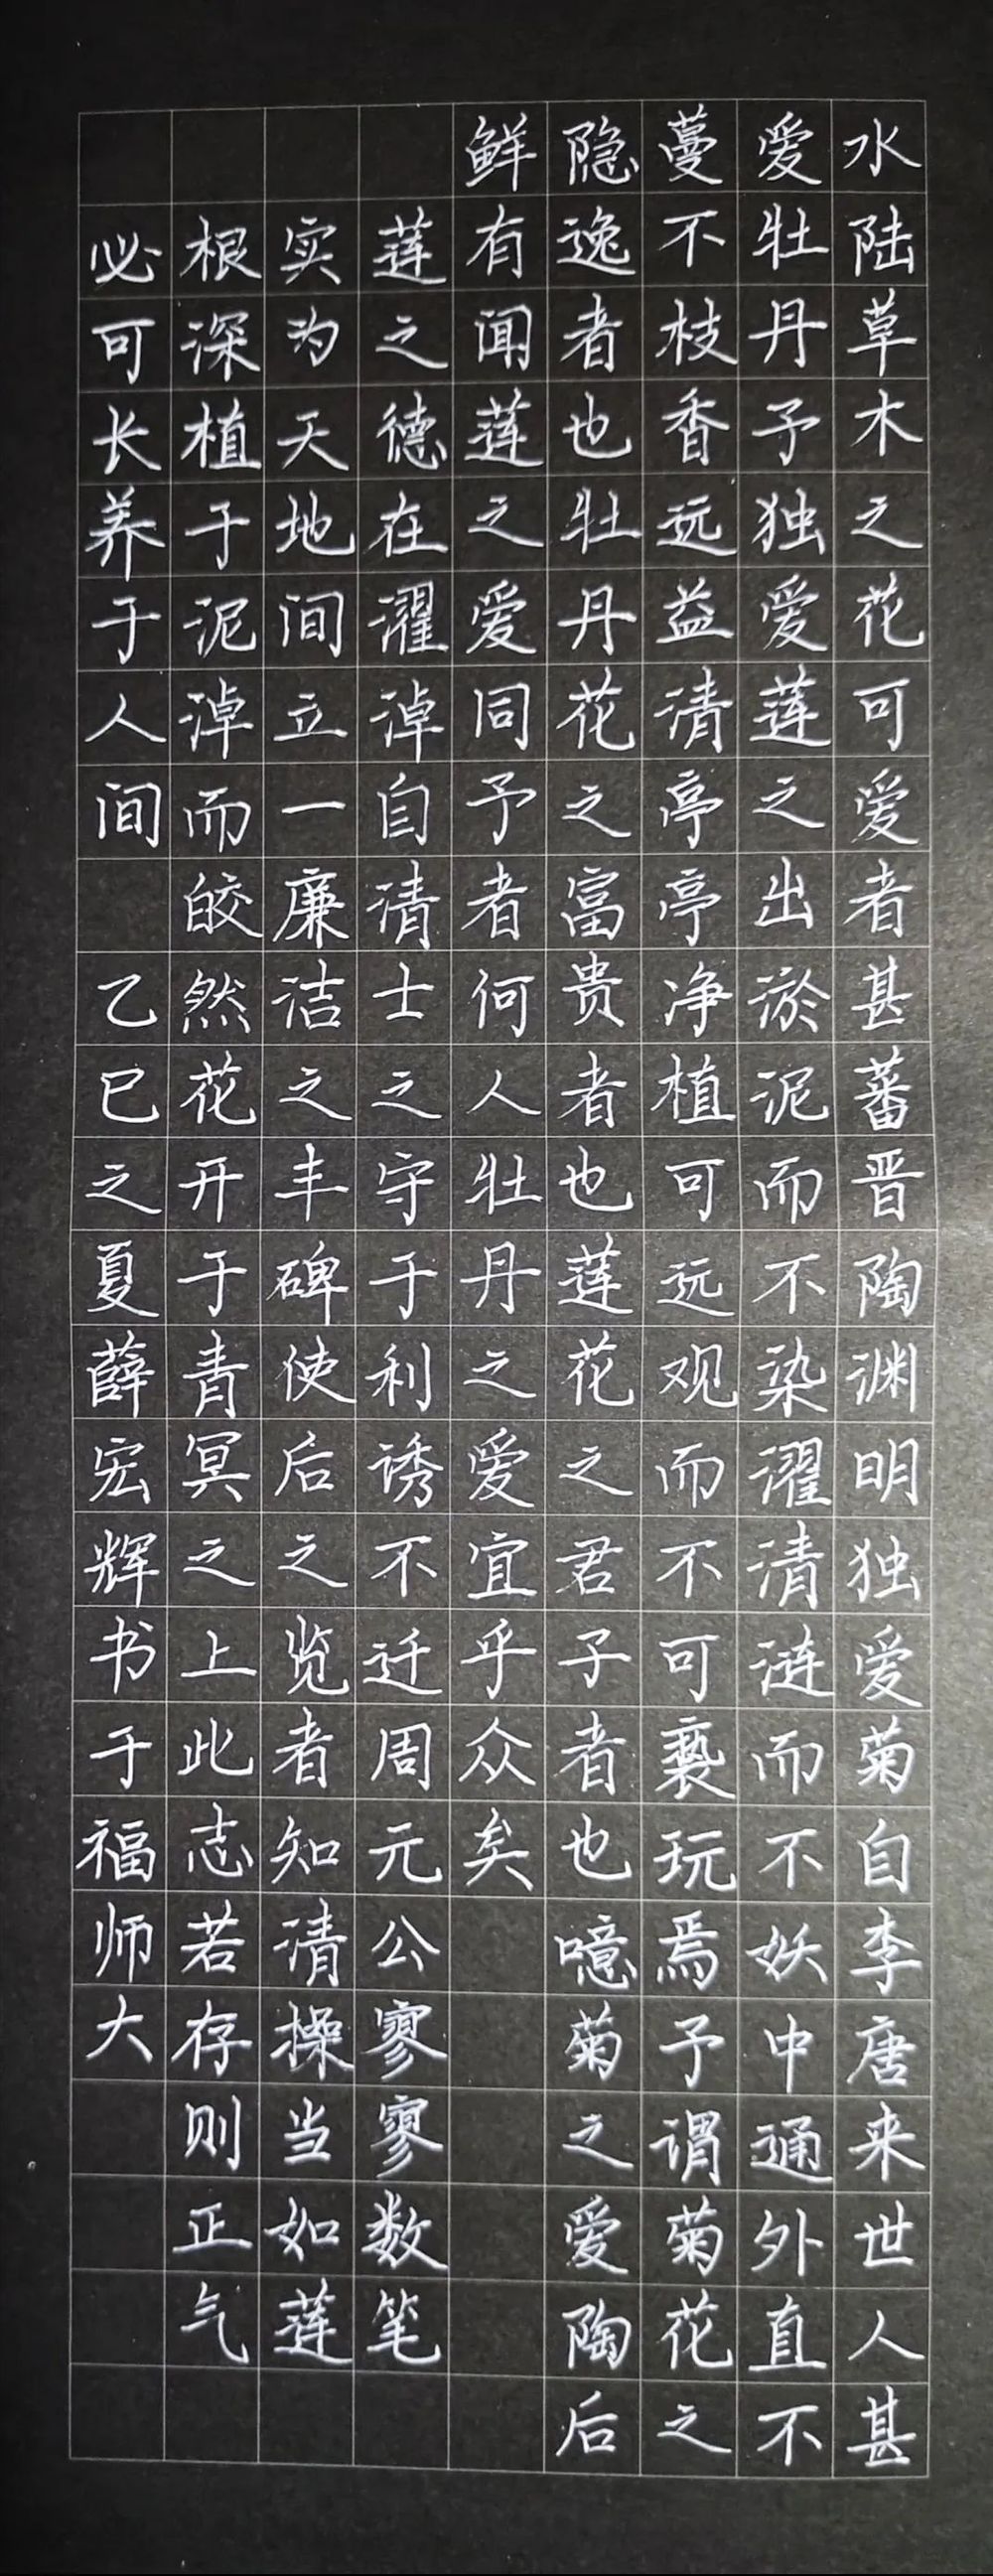 水陆草木之花可爱者甚蕃晋陶渊明独爱菊自李唐来世人甚
爱牡丹予独爱莲之出淤泥而不染濯清涟而不妖中通外直不
蔓不枝香远益清亭亭净植可远观而不可亵玩焉予谓菊花之
隐逸者也牡丹花之富贵者也莲花之君子者也噫菊之爱陶后
鲜有闻莲之爱同予者何人牡丹之爱宜乎众矣
莲之德在濯淖自清士之守于利诱不迁周元公寥寥数笔
实为天地间立一廉洁之丰碑使后之览者知清操当如莲
根深植于泥淖而皎然花开于青冥之上此志若存则正气
必可长养于人间 乙巳之夏薛宏辉书于福师大